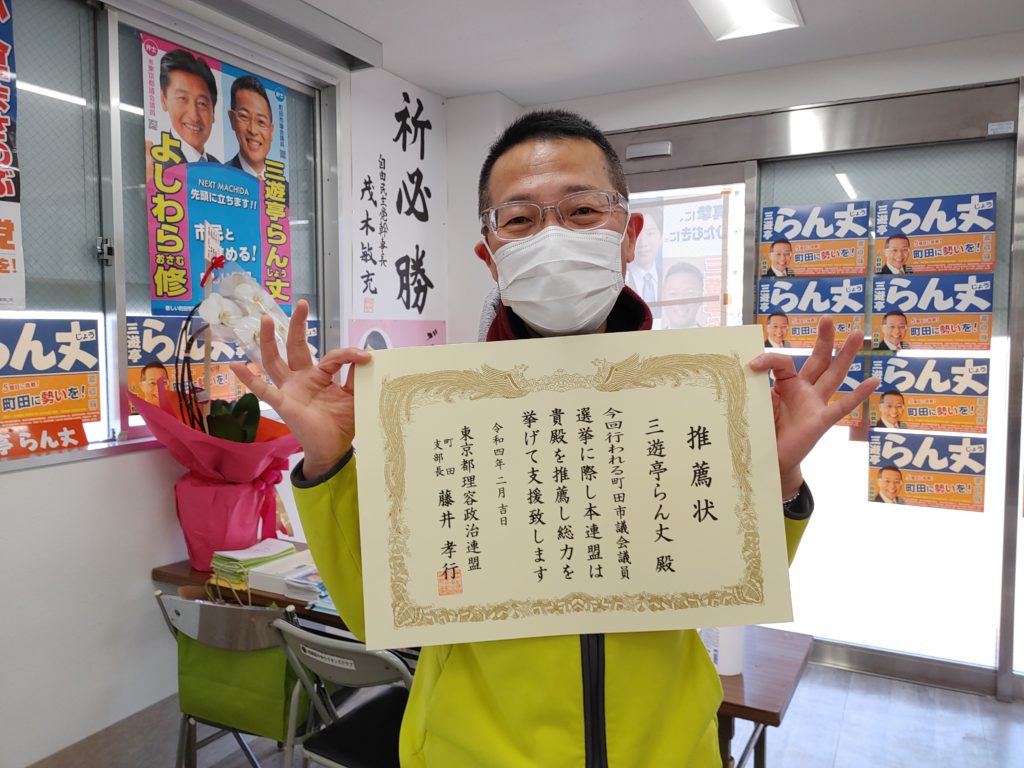 弁士
東京都議会議員
よしわら
おさむ
修
NEXT MACHIDA
先頭に立ちます!!
三遊亭らん丈
じょう
祈必勝
自由民主党幹事長
茂木敏充
推薦状
三遊亭らん丈 殿
今回行われる町田市議会議員
選挙に際し本連盟は
貴殿を推薦し総力を
挙げて支援致します
令和四年二月吉日
東京都理容政治連盟
町田
支部長
藤井孝行
らん丈
じょう
町田に勢いを!
三遊亭
らん丈
じょう
三遊亭
らん丈
じょう
町田に勢いを!
三遊亭
らん丈
じょう
町田に勢いを!
三遊亭
らん丈
じょう
町田に勢いを!
三遊亭
らん丈
じょう
町田に勢いを!
らん丈
じょう
町田に勢いを!
三遊亭
らん丈
じょう
町田に勢いを!
らん丈